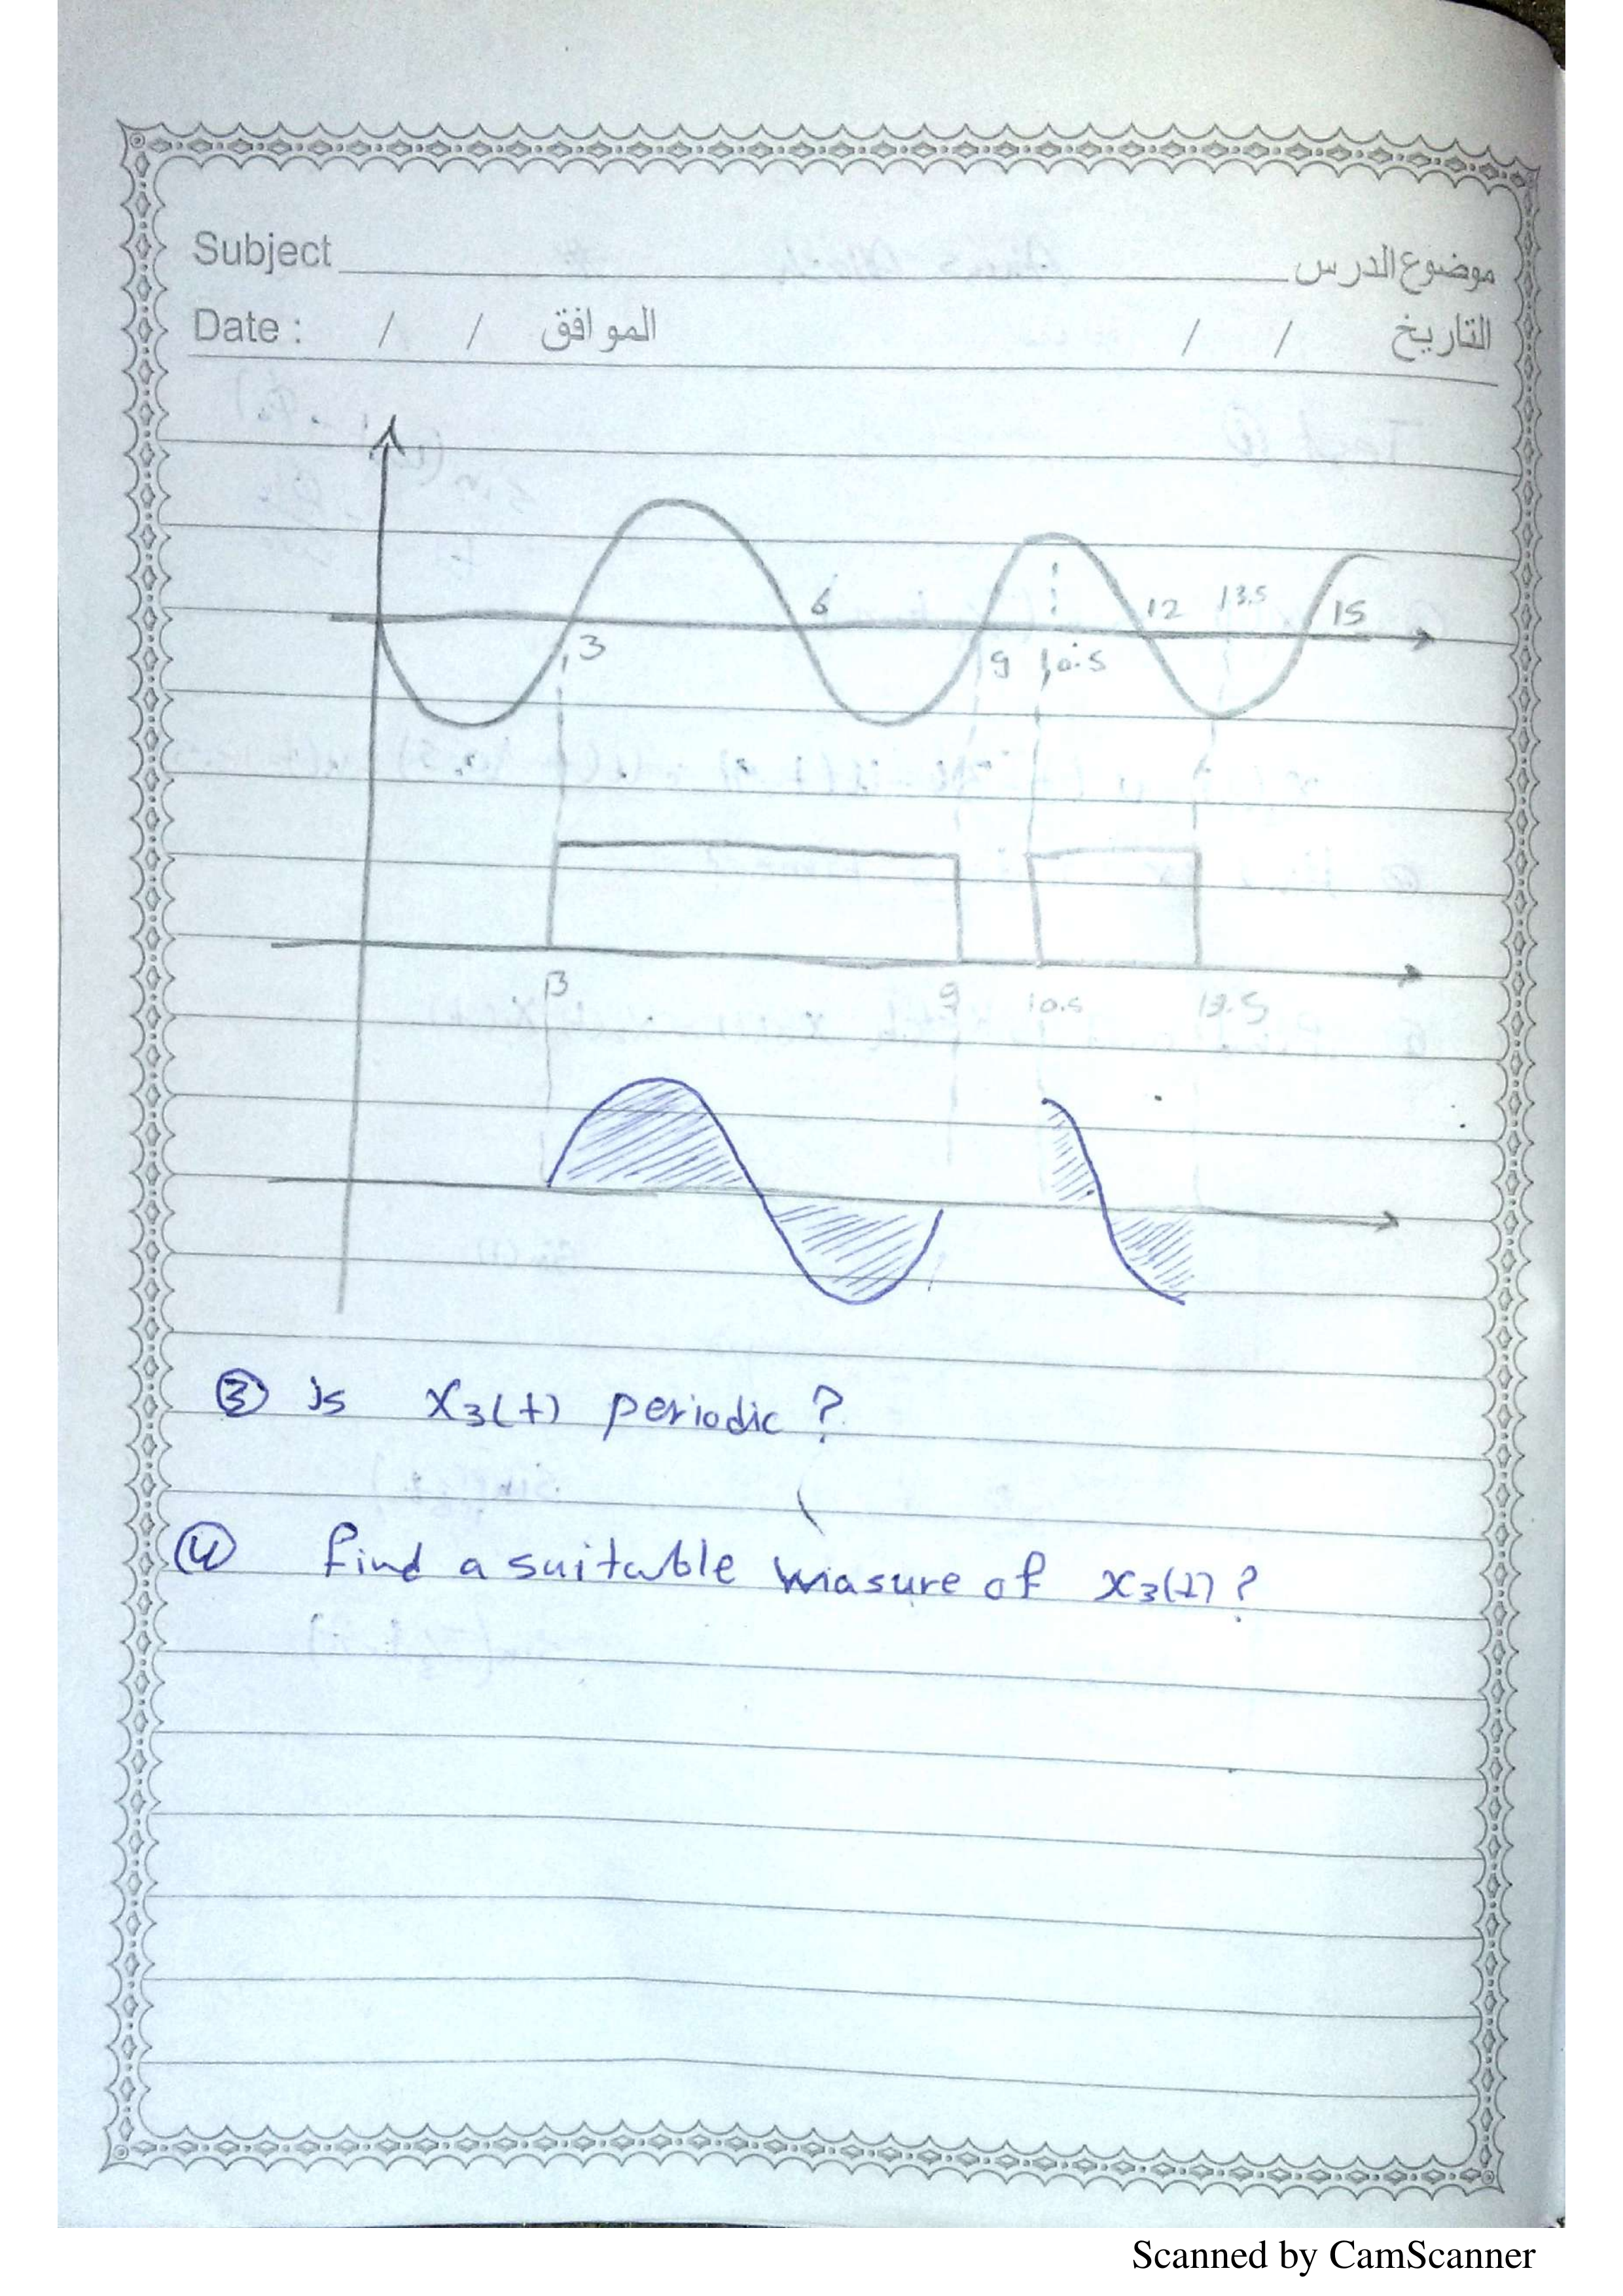 Subject موضوع الدرس
Date : / / الموافق / / التاريخ
6 12 13.5 15
3 9 10.5
3 9 10.5 13.5
③ Is x₃(t) periodic ?
④ find a suitable measure of x₃(t) ?
Scanned by CamScanner